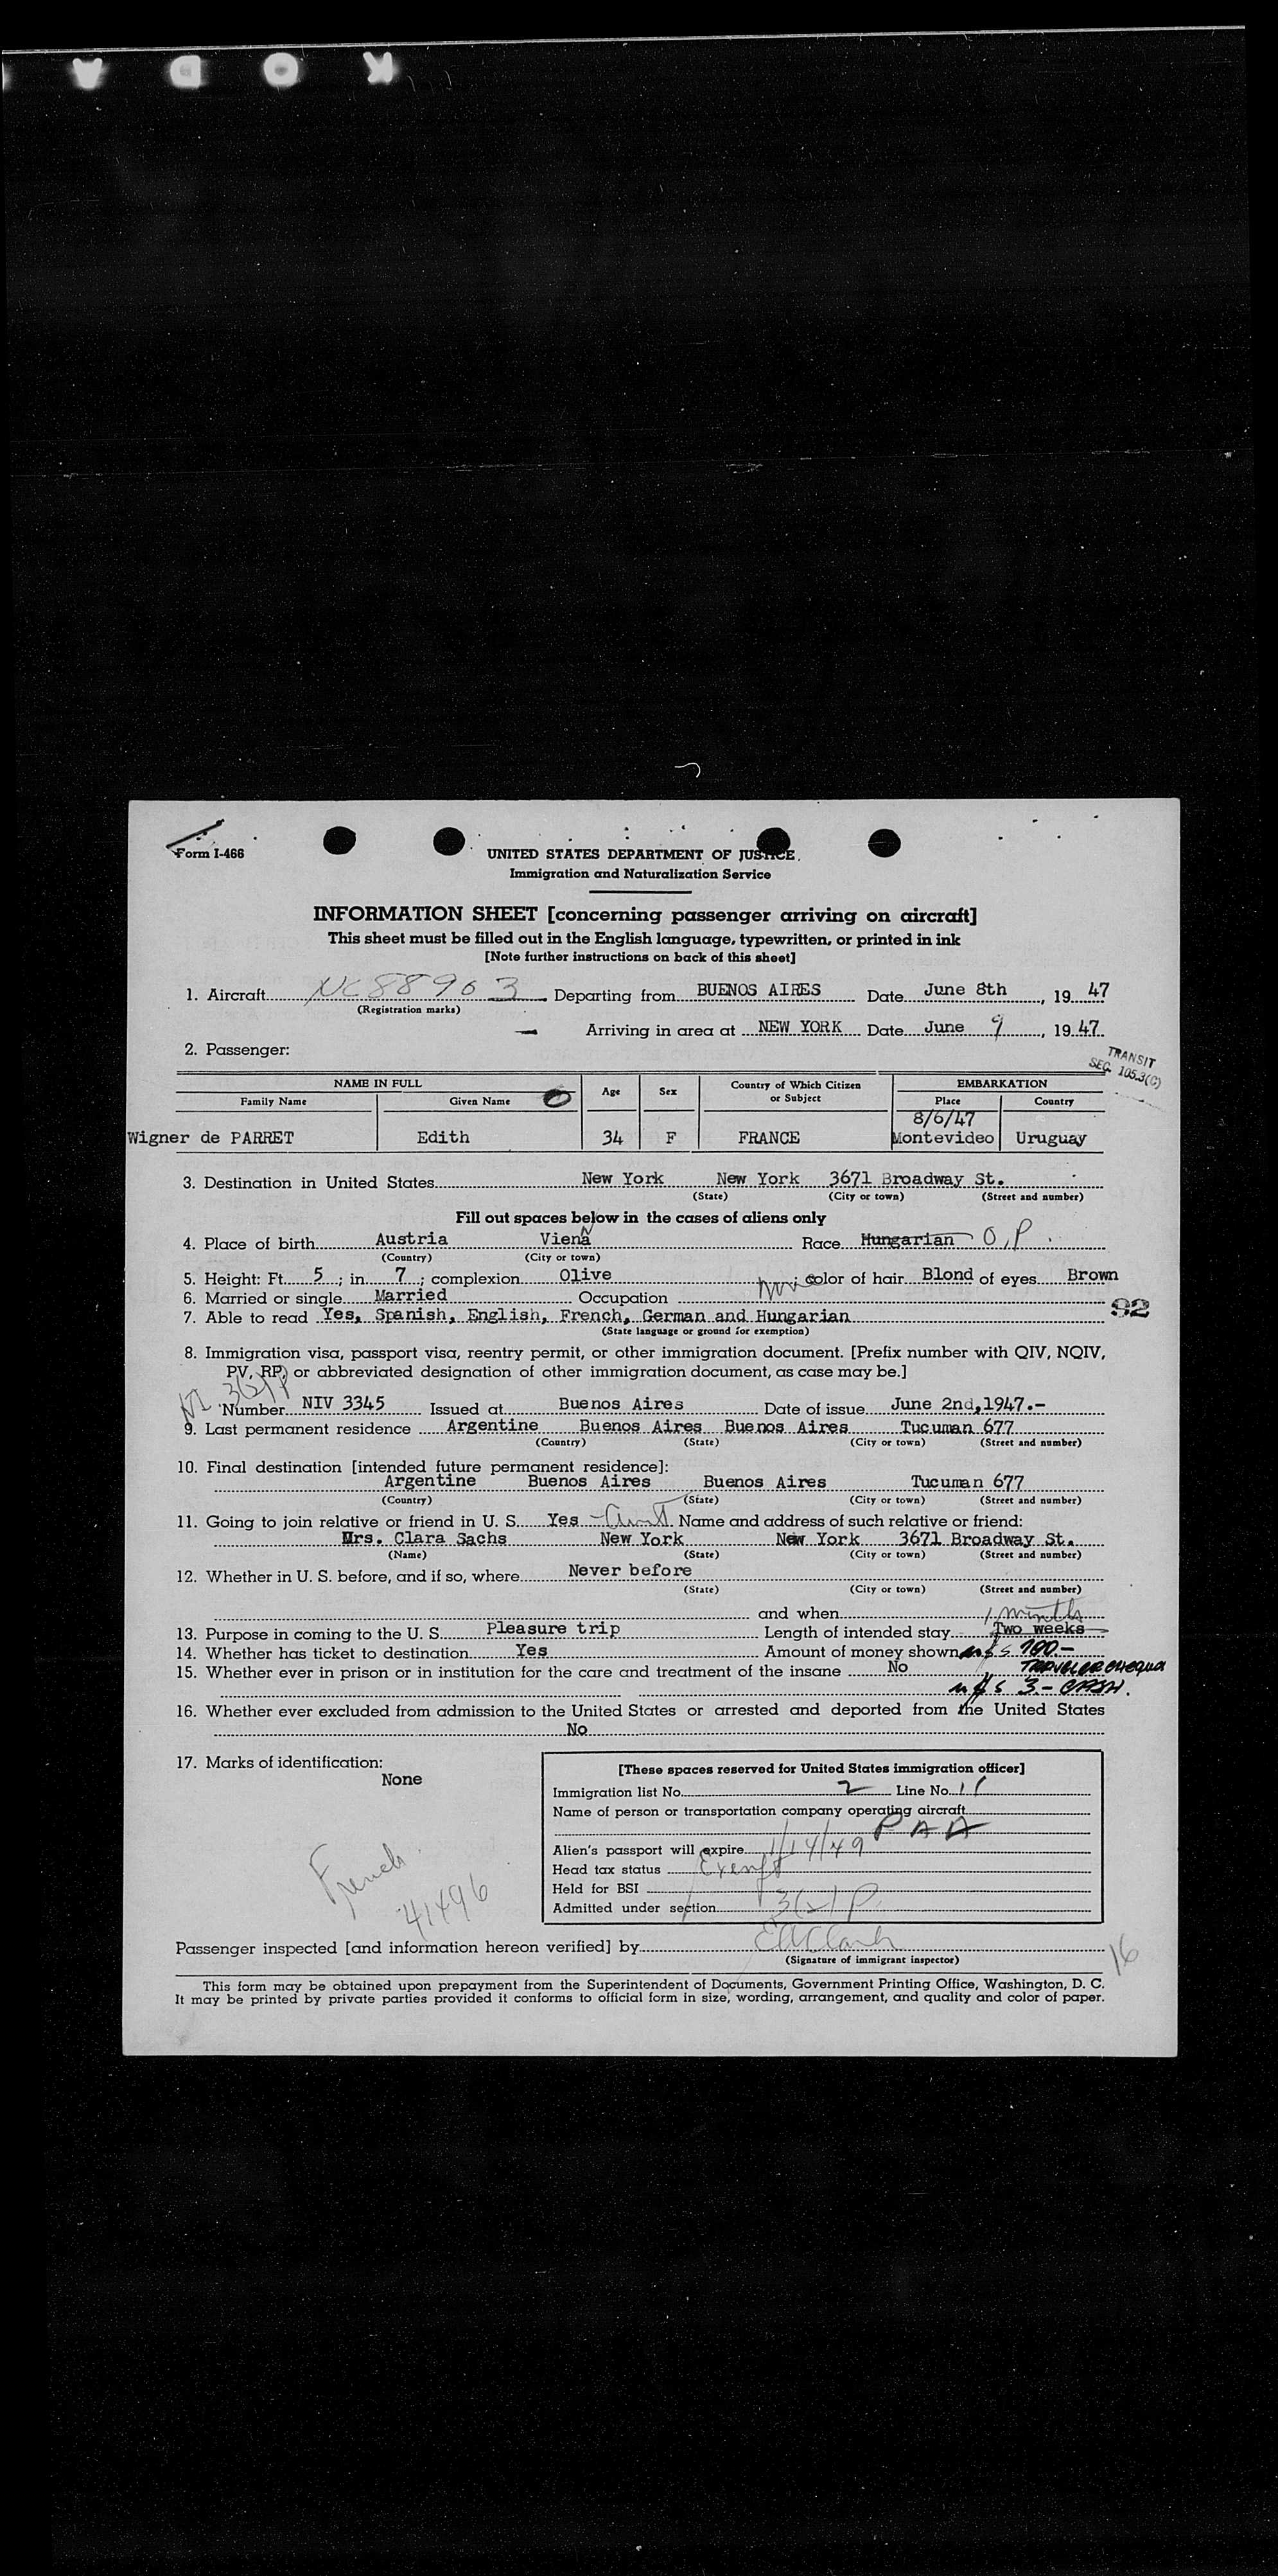 K O D A
Form I-466
UNITED STATES DEPARTMENT OF JUSTICE
Immigration and Naturalization Service
INFORMATION SHEET [concerning passenger arriving on aircraft]
This sheet must be filled out in the English language, typewritten, or printed in ink
[Note further instructions on back of this sheet]
1. Aircraft NC88903 Departing from BUENOS AIRES Date June 8th, 19 47
(Registration marks)
Arriving in area at NEW YORK Date June 9, 19 47
2. Passenger:
TRANSIT
SEC. 105.3(C)
NAME IN FULL Age Sex Country of Which Citizen or Subject EMBARKATION
Family Name Given Name Place Country
8/6/47
Wigner de PARRET Edith 34 F FRANCE Montevideo Uruguay
3. Destination in United States New York New York 3671 Broadway St.
(State) (City or town) (Street and number)
Fill out spaces below in the cases of aliens only
4. Place of birth Austria Viena N Race Hungarian O.P.
(Country) (City or town)
5. Height: Ft. 5; in 7; complexion Olive; color of hair Blond of eyes Brown
6. Married or single Married Occupation none
92
7. Able to read Yes, Spanish, English, French, German and Hungarian
(State language or ground for exemption)
8. Immigration visa, passport visa, reentry permit, or other immigration document. [Prefix number with QIV, NQIV,
PV, RP, or abbreviated designation of other immigration document, as case may be.]
3(2)P
Number NIV 3345 Issued at Buenos Aires Date of issue June 2nd,1947.-
9. Last permanent residence Argentine Buenos Aires Buenos Aires Tucuman 677
(Country) (State) (City or town) (Street and number)
10. Final destination [intended future permanent residence]:
Argentine Buenos Aires Buenos Aires Tucuman 677
(Country) (State) (City or town) (Street and number)
11. Going to join relative or friend in U. S. Yes - Aunt Name and address of such relative or friend:
Mrs. Clara Sachs New York New York 3671 Broadway St.
(Name) (State) (City or town) (Street and number)
12. Whether in U. S. before, and if so, where Never before
(State) (City or town) (Street and number)
and when 1 months
13. Purpose in coming to the U. S. Pleasure trip Length of intended stay Two weeks
14. Whether has ticket to destination Yes Amount of money shown 100-
15. Whether ever in prison or in institution for the care and treatment of the insane No
TRAVELER CHEQUE
3.- CASH.
16. Whether ever excluded from admission to the United States or arrested and deported from the United States
No
17. Marks of identification:
None
[These spaces reserved for United States immigration officer]
Immigration list No. 2 Line No. 11
Name of person or transportation company operating aircraft
PAA
Alien's passport will expire 1/14/49
Head tax status Exempt
Held for BSI
Admitted under section 3(2)P.
French
41496
Passenger inspected [and information hereon verified] by EAClark
(Signature of immigrant inspector)
16
This form may be obtained upon prepayment from the Superintendent of Documents, Government Printing Office, Washington, D. C.
It may be printed by private parties provided it conforms to official form in size, wording, arrangement, and quality and color of paper.